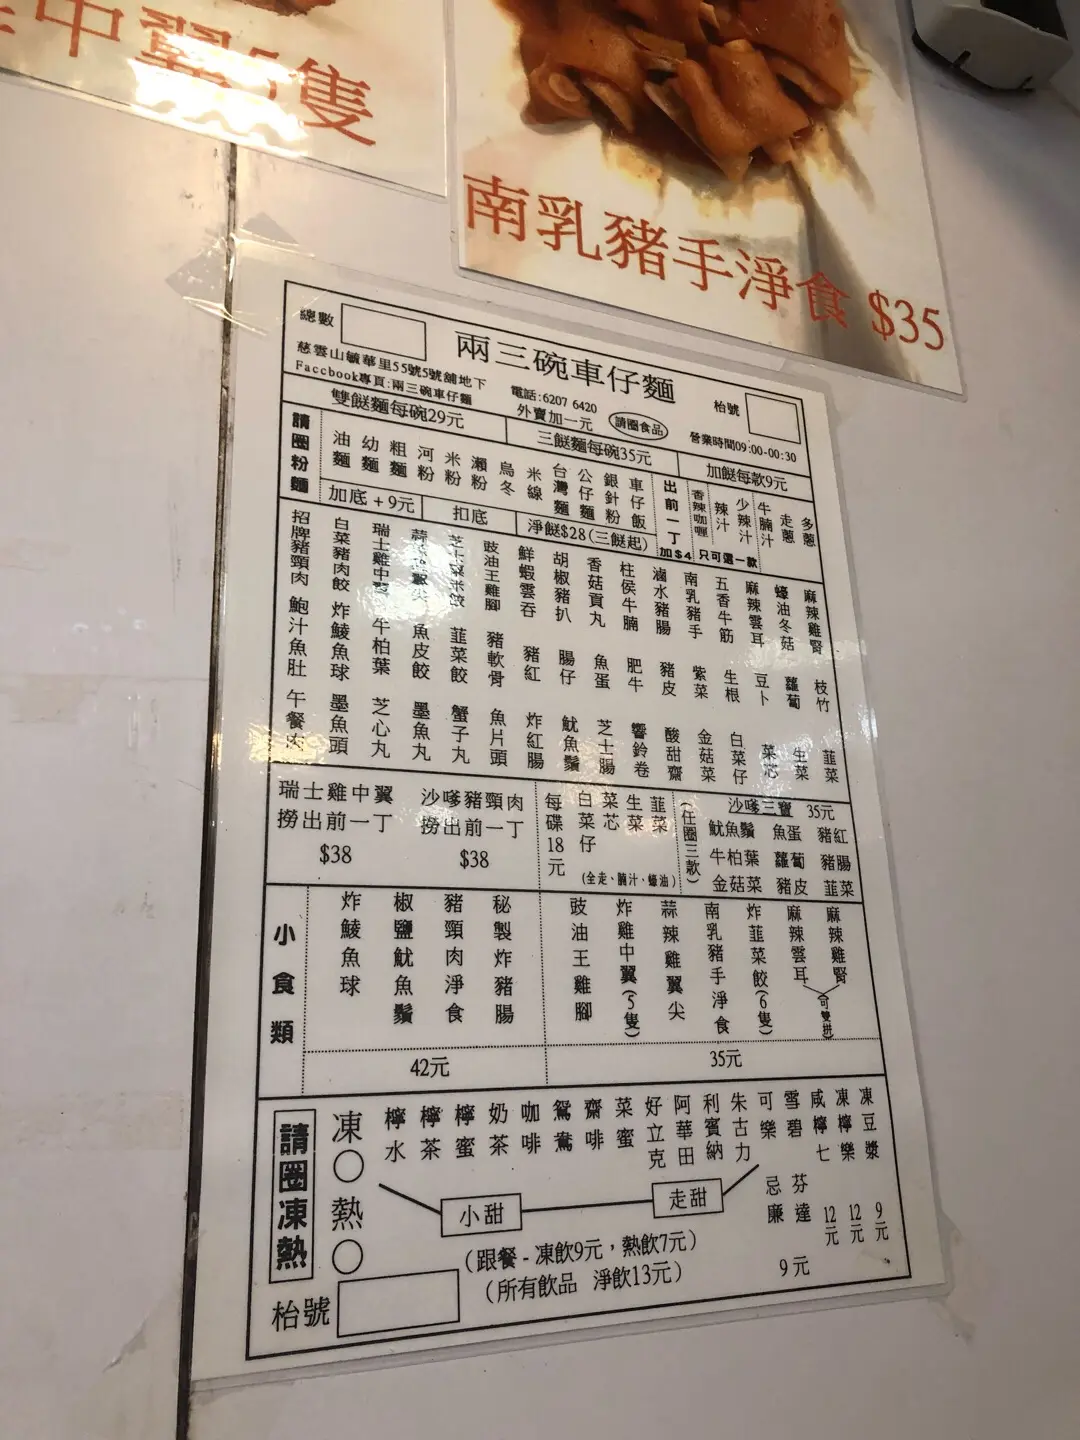 中翼5隻
南乳豬手淨食 $35
總數
兩三碗車仔麵
枱號
慈雲山毓華里55號5號舖地下
Faccbook專頁:兩三碗車仔麵
電話:6207 6420
外賣加一元
請圈食品
營業時間09:00-00:30
雙餸麵每碗29元
三餸麵每碗35元
加餸每款9元
請圈粉麵
油麵 幼麵 粗麵 河粉 米粉 瀨粉 烏冬 米線 台灣麵 公仔麵 銀針粉 車仔飯
出前一丁 加$4
香辣咖喱 辣汁 少辣汁 牛腩汁 走蔥 多蔥
只可選一款
加底 + 9元
扣底
淨餸$28(三餸起)
招牌豬頸肉 白菜豬肉餃 瑞士雞中翼 豉油王雞腳 鮮蝦雲吞 胡椒豬扒 香菇貢丸 柱侯牛腩 滷水豬腸 南乳豬手 五香牛筋 麻辣雲耳 蠔油冬菇 麻辣雞腎
鮑汁魚肚 炸鯪魚球 牛柏葉 魚皮餃 韮菜餃 豬軟骨 豬紅 腸仔 魚蛋 肥牛 豬皮 紫菜 生根 豆卜 蘿蔔 枝竹
午餐肉 墨魚頭 芝心丸 墨魚丸 蟹子丸 魚片頭 炸紅腸 魷魚鬚 芝士腸 響鈴卷 酸甜齋 金菇菜 白菜仔 菜芯 生菜 韮菜
瑞士雞中翼
撈出前一丁
$38
沙嗲豬頸肉
撈出前一丁
$38
每碟18元
白菜仔 菜芯 生菜 韮菜
(全走、腩汁、蠔油)
(任圈三款)
沙嗲三寶 35元
魷魚鬚 魚蛋 豬紅
牛柏葉 蘿蔔 豬腸
金菇菜 豬皮 韮菜
小食類
炸鯪魚球 椒鹽魷魚鬚 豬頸肉淨食 秘製炸豬腸
42元
豉油王雞腳 炸雞中翼(5隻) 蒜辣雞翼尖 南乳豬手淨食 炸韮菜餃(6隻) 麻辣雲耳 麻辣雞腎
(可雙拼)
35元
請圈凍熱
凍○熱○
檸水 檸茶 檸蜜 奶茶 咖啡 鴛鴦 齋啡 菜蜜 好立克 阿華田 利賓納 朱古力 可樂 雪碧 咸檸七 凍檸樂 凍豆漿
忌廉 芬達
12元 12元 9元
小甜
走甜
(跟餐 - 凍飲9元，熱飲7元)
(所有飲品 淨飲13元)
9元
枱號